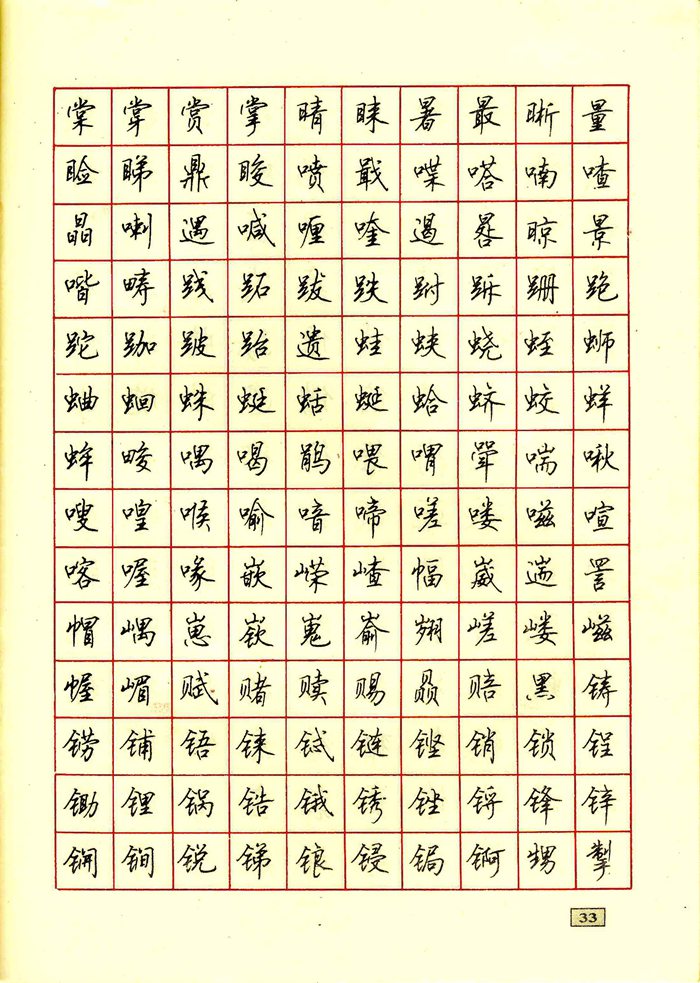 棠 牚 赏 掌 晴 睐 暑 最 晰 量
睑 睇 鼎 睃 喷 戢 喋 嗒 喃 喳
晶 喇 遇 喊 喱 喹 遏 晷 晾 景
喈 畴 践 跖 跋 跌 跗 跞 跚 跑
跎 跏 跛 跆 遗 蛙 蛱 蛲 蛭 蛳
蛐 蛔 蛛 蜓 蛞 蜒 蛤 蛴 蛟 蛘
蛑 畯 喁 喝 鹃 喂 喟 斝 喘 啾
嗖 喤 喉 喻 喑 啼 嗟 喽 嗞 喧
喀 喔 喙 嵌 嵘 嵖 幅 崴 遄 詈
帽 嵎 崽 嵚 嵬 嵛 翙 嵯 嵝 嵫
幄 嵋 赋 赌 赎 赐 赑 赔 黑 铸
铹 铺 铻 铼 铽 链 铿 销 锁 锃
锄 锂 锅 锆 锇 锈 锉 锊 锋 锌
锎 锏 锐 锑 锒 锓 锔 锕 甥 掣
33